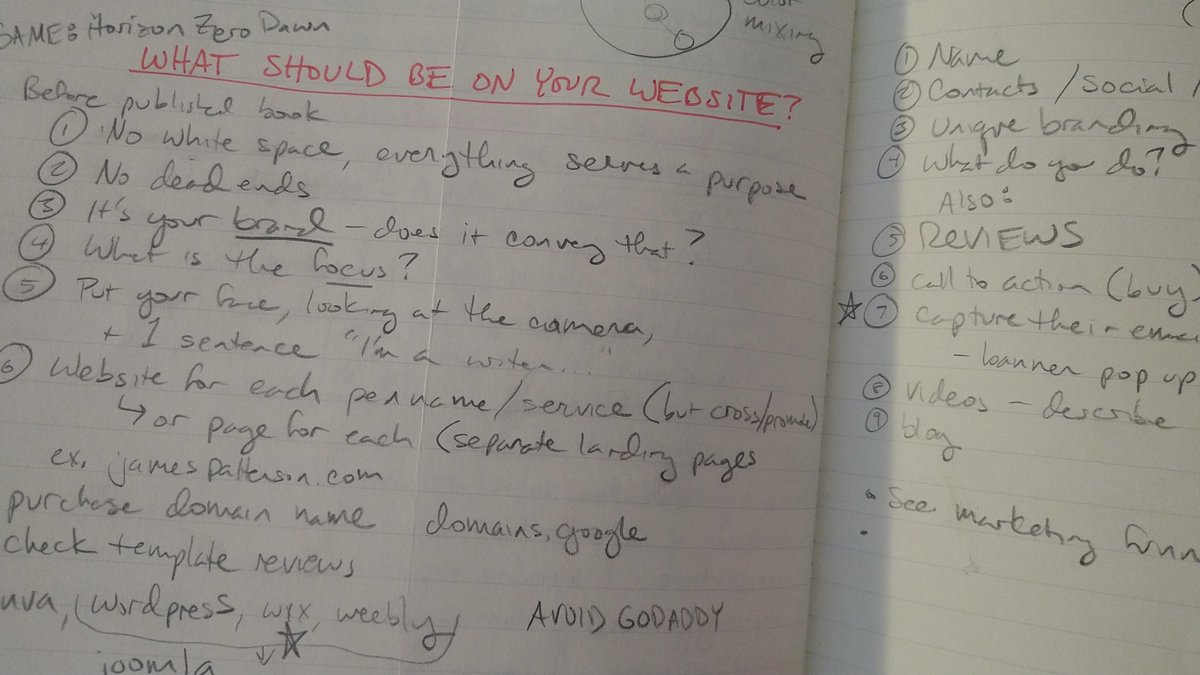 GAME: Horizon Zero Dawn
color
mixing
WHAT SHOULD BE ON YOUR WEBSITE?
Before published book
① No white space, everything serves a purpose
② No dead ends
③ It's your brand - does it convey that?
④ What is the focus?
⑤ Put your face, looking at the camera,
+ 1 sentence "I'm a writer..."
⑥ Website for each pen name/service (but cross/promote)
↳ or page for each (separate landing pages
ex. jamespatterson.com
purchase domain name domains.google
check template reviews
nva, (wordpress, wix, weebly)
AVOID GODADDY
joomla
① Name
② Contacts / social /
③ Unique branding
④ What do you do?
Also:
⑤ REVIEWS
⑥ call to action (buy)
☆ ⑦ capture their emai
- banner pop up
⑧ videos - describe
⑨ blog
• See marketing funn